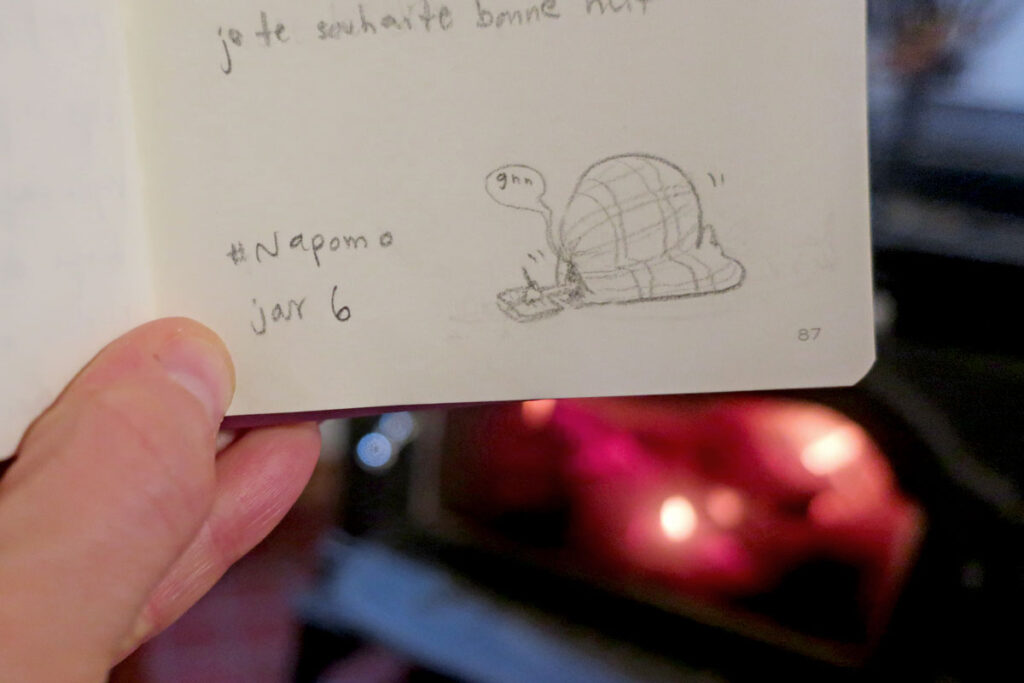 je te souhaite bonne nuit
gnn
#Napomo
jar 6
87